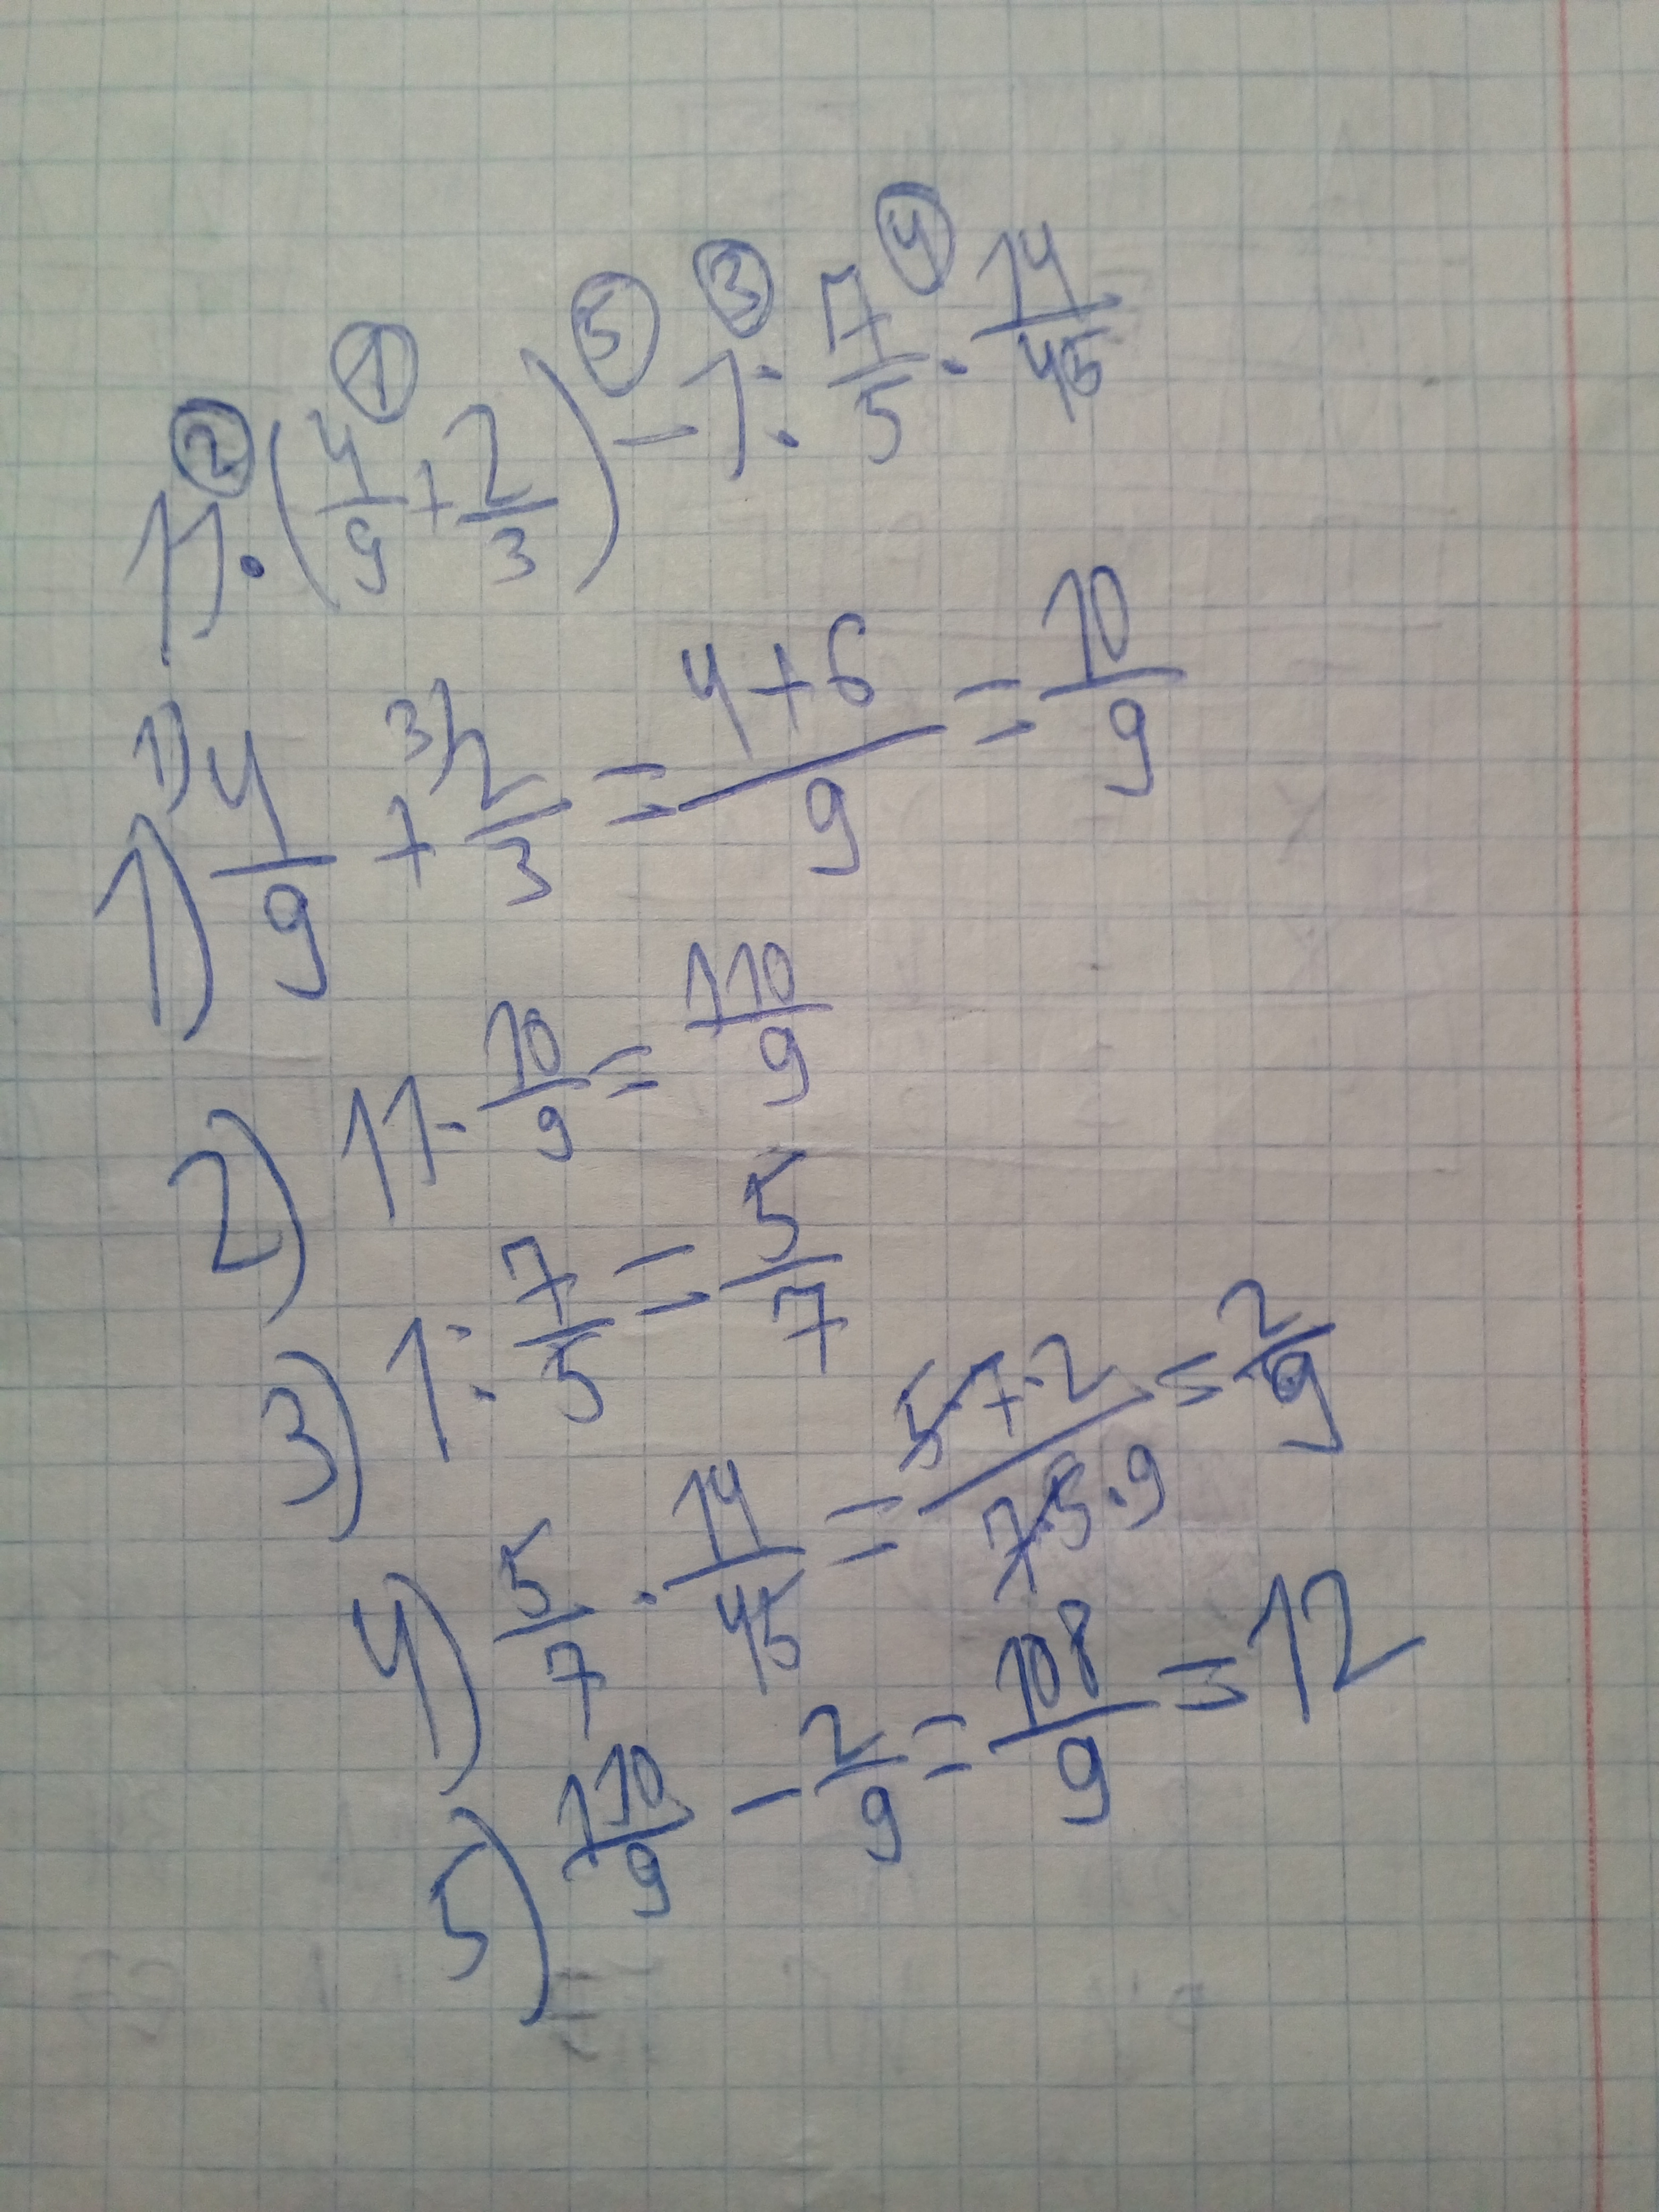 ② ① ⑤ ③ ④
11·(4/9+2/3)-1:7/5·14/45
1) ¹⁾4/9+³⁾2/3=4+6/9=10/9
2) 11·10/9=110/9
3) 1:7/5=5/7
4) 5/7·14/45=5·7·2/7·5·9=2/9
5) 110/9-2/9=108/9=12